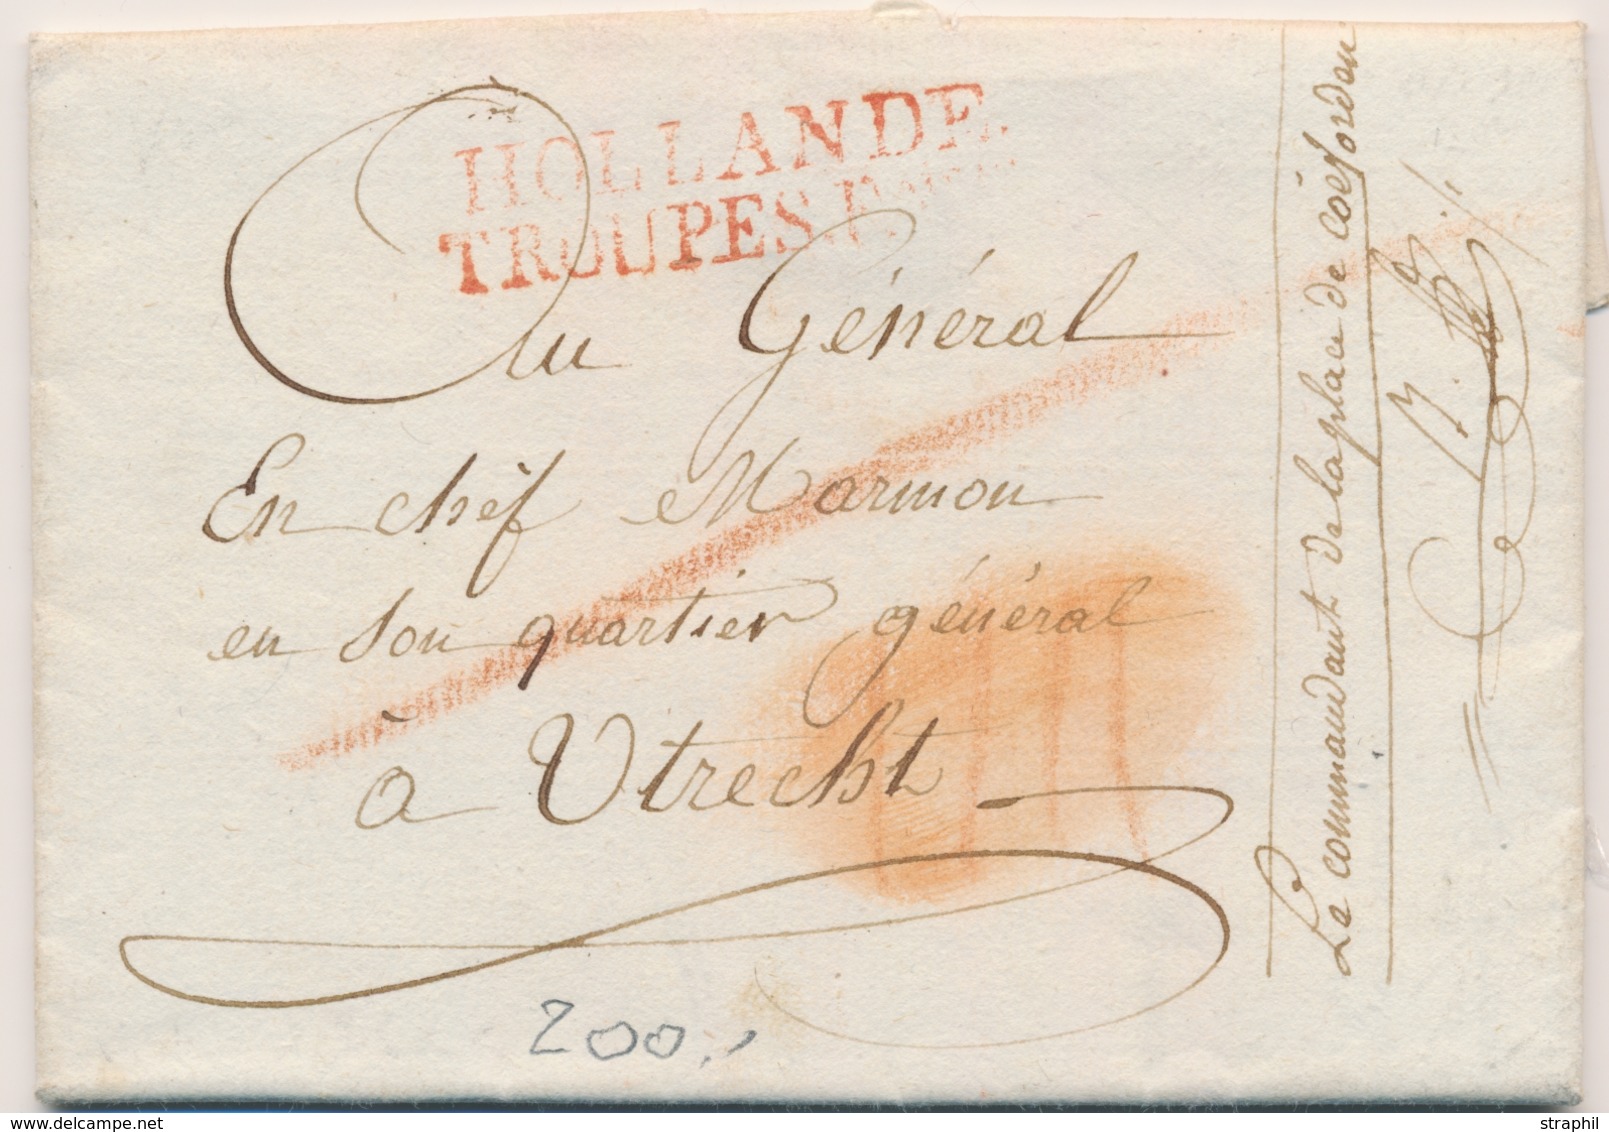 HOLLANDE
TROUPES
Au Général
En chèf Marmon
en son quartier général
à Utrecht
200
Le commandant de la place de coëforden
straphil
www.delcampe.net